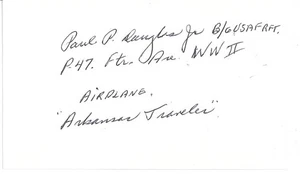 Paul P. Douglas Jr B/G USAF RFT.
P.47. Ftr. Ace WW II
AIRPLANE.
"Arkansas Traveler"